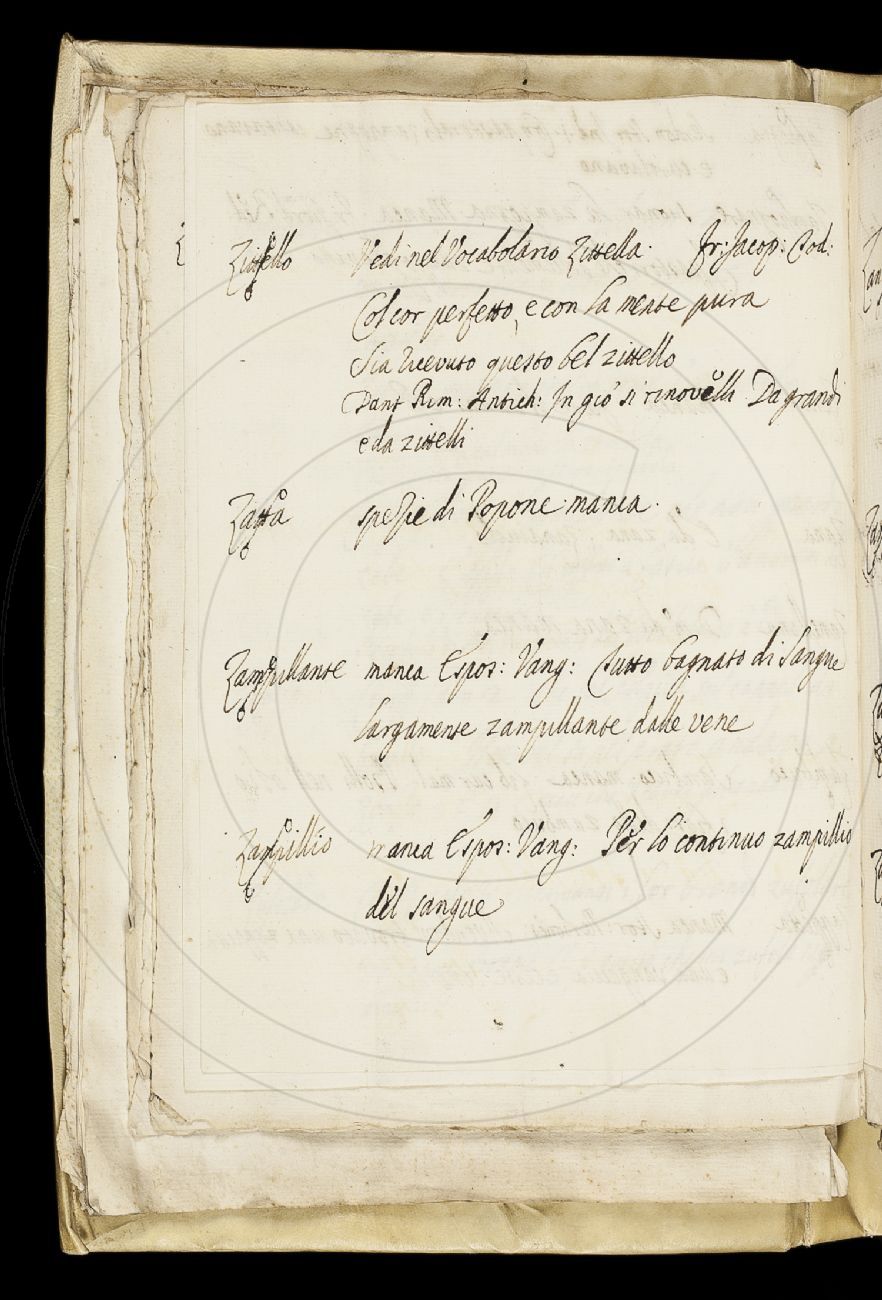 Zittello Vedi nel Vocabolario Zittella. fr: Jacop: Tod:
Col cor perfetto, e con la mente pura
Sia ricevuto questo bel zittello
Dant Rim: Antich: In giò si rinovelli Da grandi
e da zittelli
Zatta spezie di Popone manca.
Zampillante manca Espos: Vang: Tutto bagnato di sangue
largamente zampillante dalle vene
Zampillio manca Espos: Vang: Per lo continuo zampillio
del sangue